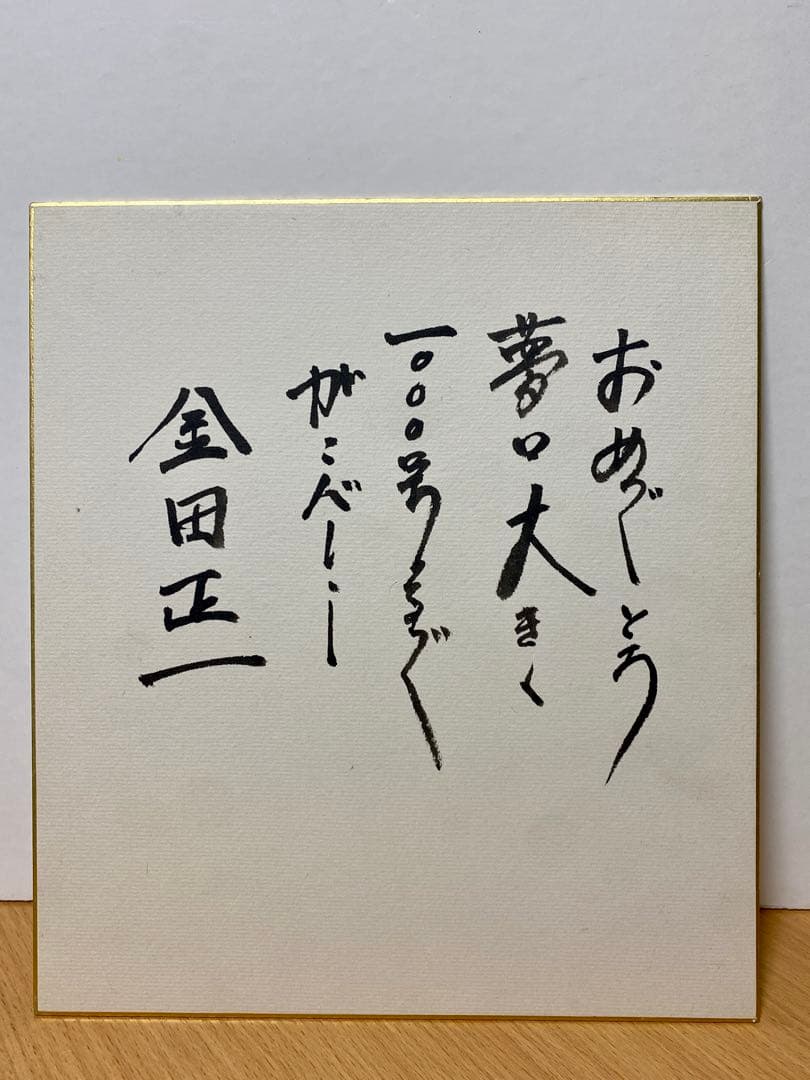 おめでとう
夢は大きく
一〇〇〇号めざして
がんばれ
金田正一